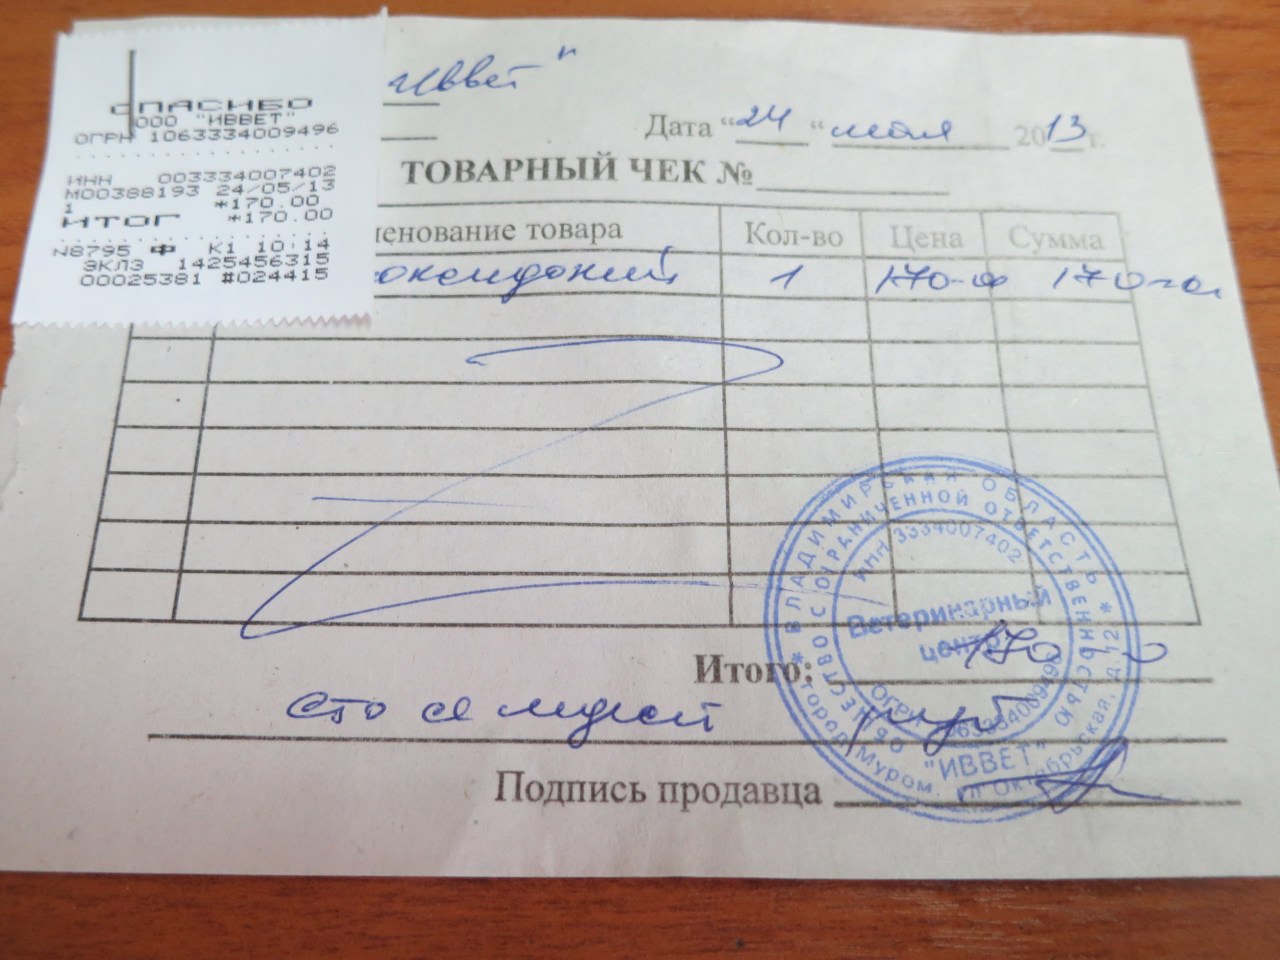 СПАСИБО
ООО "ИВВЕТ"
ОГРН 1063334009496
ИНН 003334007402
М00388193 24/05/13
1 *170.00
ИТОГ *170.00
N8795 Ф К1 10-14
ЭКЛЗ 1425456315
00025381 #024415
"Иввет"
Дата "24" мая 2013 г.
ТОВАРНЫЙ ЧЕК №
менование товара Кол-во Цена Сумма
1 170-00 170-00
Итого: 170
сто семьдесят руб
Подпись продавца
* ВЛАДИМИРСКАЯ ОБЛАСТЬ *
город Муром, ул Октябрьская, д.12
ОБЩЕСТВО С ОГРАНИЧЕННОЙ ОТВЕТСТВЕННОСТЬЮ
"ИВВЕТ"
ИНН 3334007402
Ветеринарный
центр
ОГРН 1063334009496